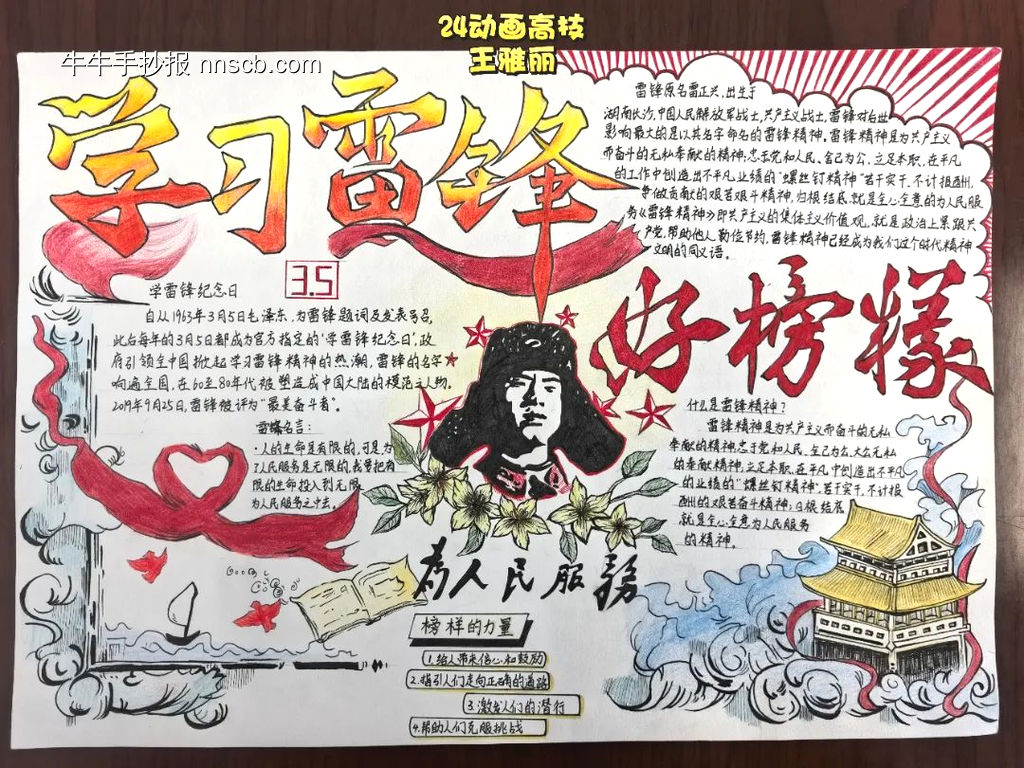 24动画高技
王雅丽
牛牛手抄报 nnscb.com
学习雷锋
雷锋原名雷正兴，出生于
湖南长沙，中国人民解放军战士，共产主义战士，雷锋对后世
影响最大的是以其名字命名的雷锋精神。雷锋精神是为共产主义
而奋斗的无私奉献的精神；忠于党和人民、舍己为公、立足本职、在平凡
的工作中创造出不平凡业绩的“螺丝钉精神”苦干实干、不计报酬，
争做贡献的艰苦艰斗精神，归根结底，就是全心全意的为人民服
务《雷锋精神》即共产主义的集体主义价值观，就是政治上紧跟共
产党，帮助他人勤俭节约，雷锋精神已经成为我们这个时代精神
文明的同义语。
好榜樣
3.5
学雷锋纪念日
自从1963年3月5日毛泽东，为雷锋题词及发表号召，
此后每年的3月5日都成为官方指定的‘学雷锋纪念日’，政
府引领全中国掀起学习雷锋精神的热潮，雷锋的名字
响遍全国，在60至80年代被塑造成中国大陆的模范人物。
2019年9月25日，雷锋被评为“最美奋斗者”。
雷锋名言：
·人的生命是有限的，可是为
人民服务是无限的，我要把有
限的生命投入到无限
为人民服务之中去。
什么是雷锋精神？
雷锋精神是为共产主义而奋斗的无私
奉献的精神；忠于党和人民、舍己为公、大公无私
的奉献精神，立足本职、在平凡中创造出不平凡
的业绩的“螺丝钉精神”，苦干实干、不计报
酬的艰苦奋斗精神；归根结底
就是全心全意为人民服务
的精神。
為人民服務
榜样的力量
1.给人带来信心和鼓励
2.指引人们走向正确的道路
3.激发人们的潜行
4.帮助人们克服挑战